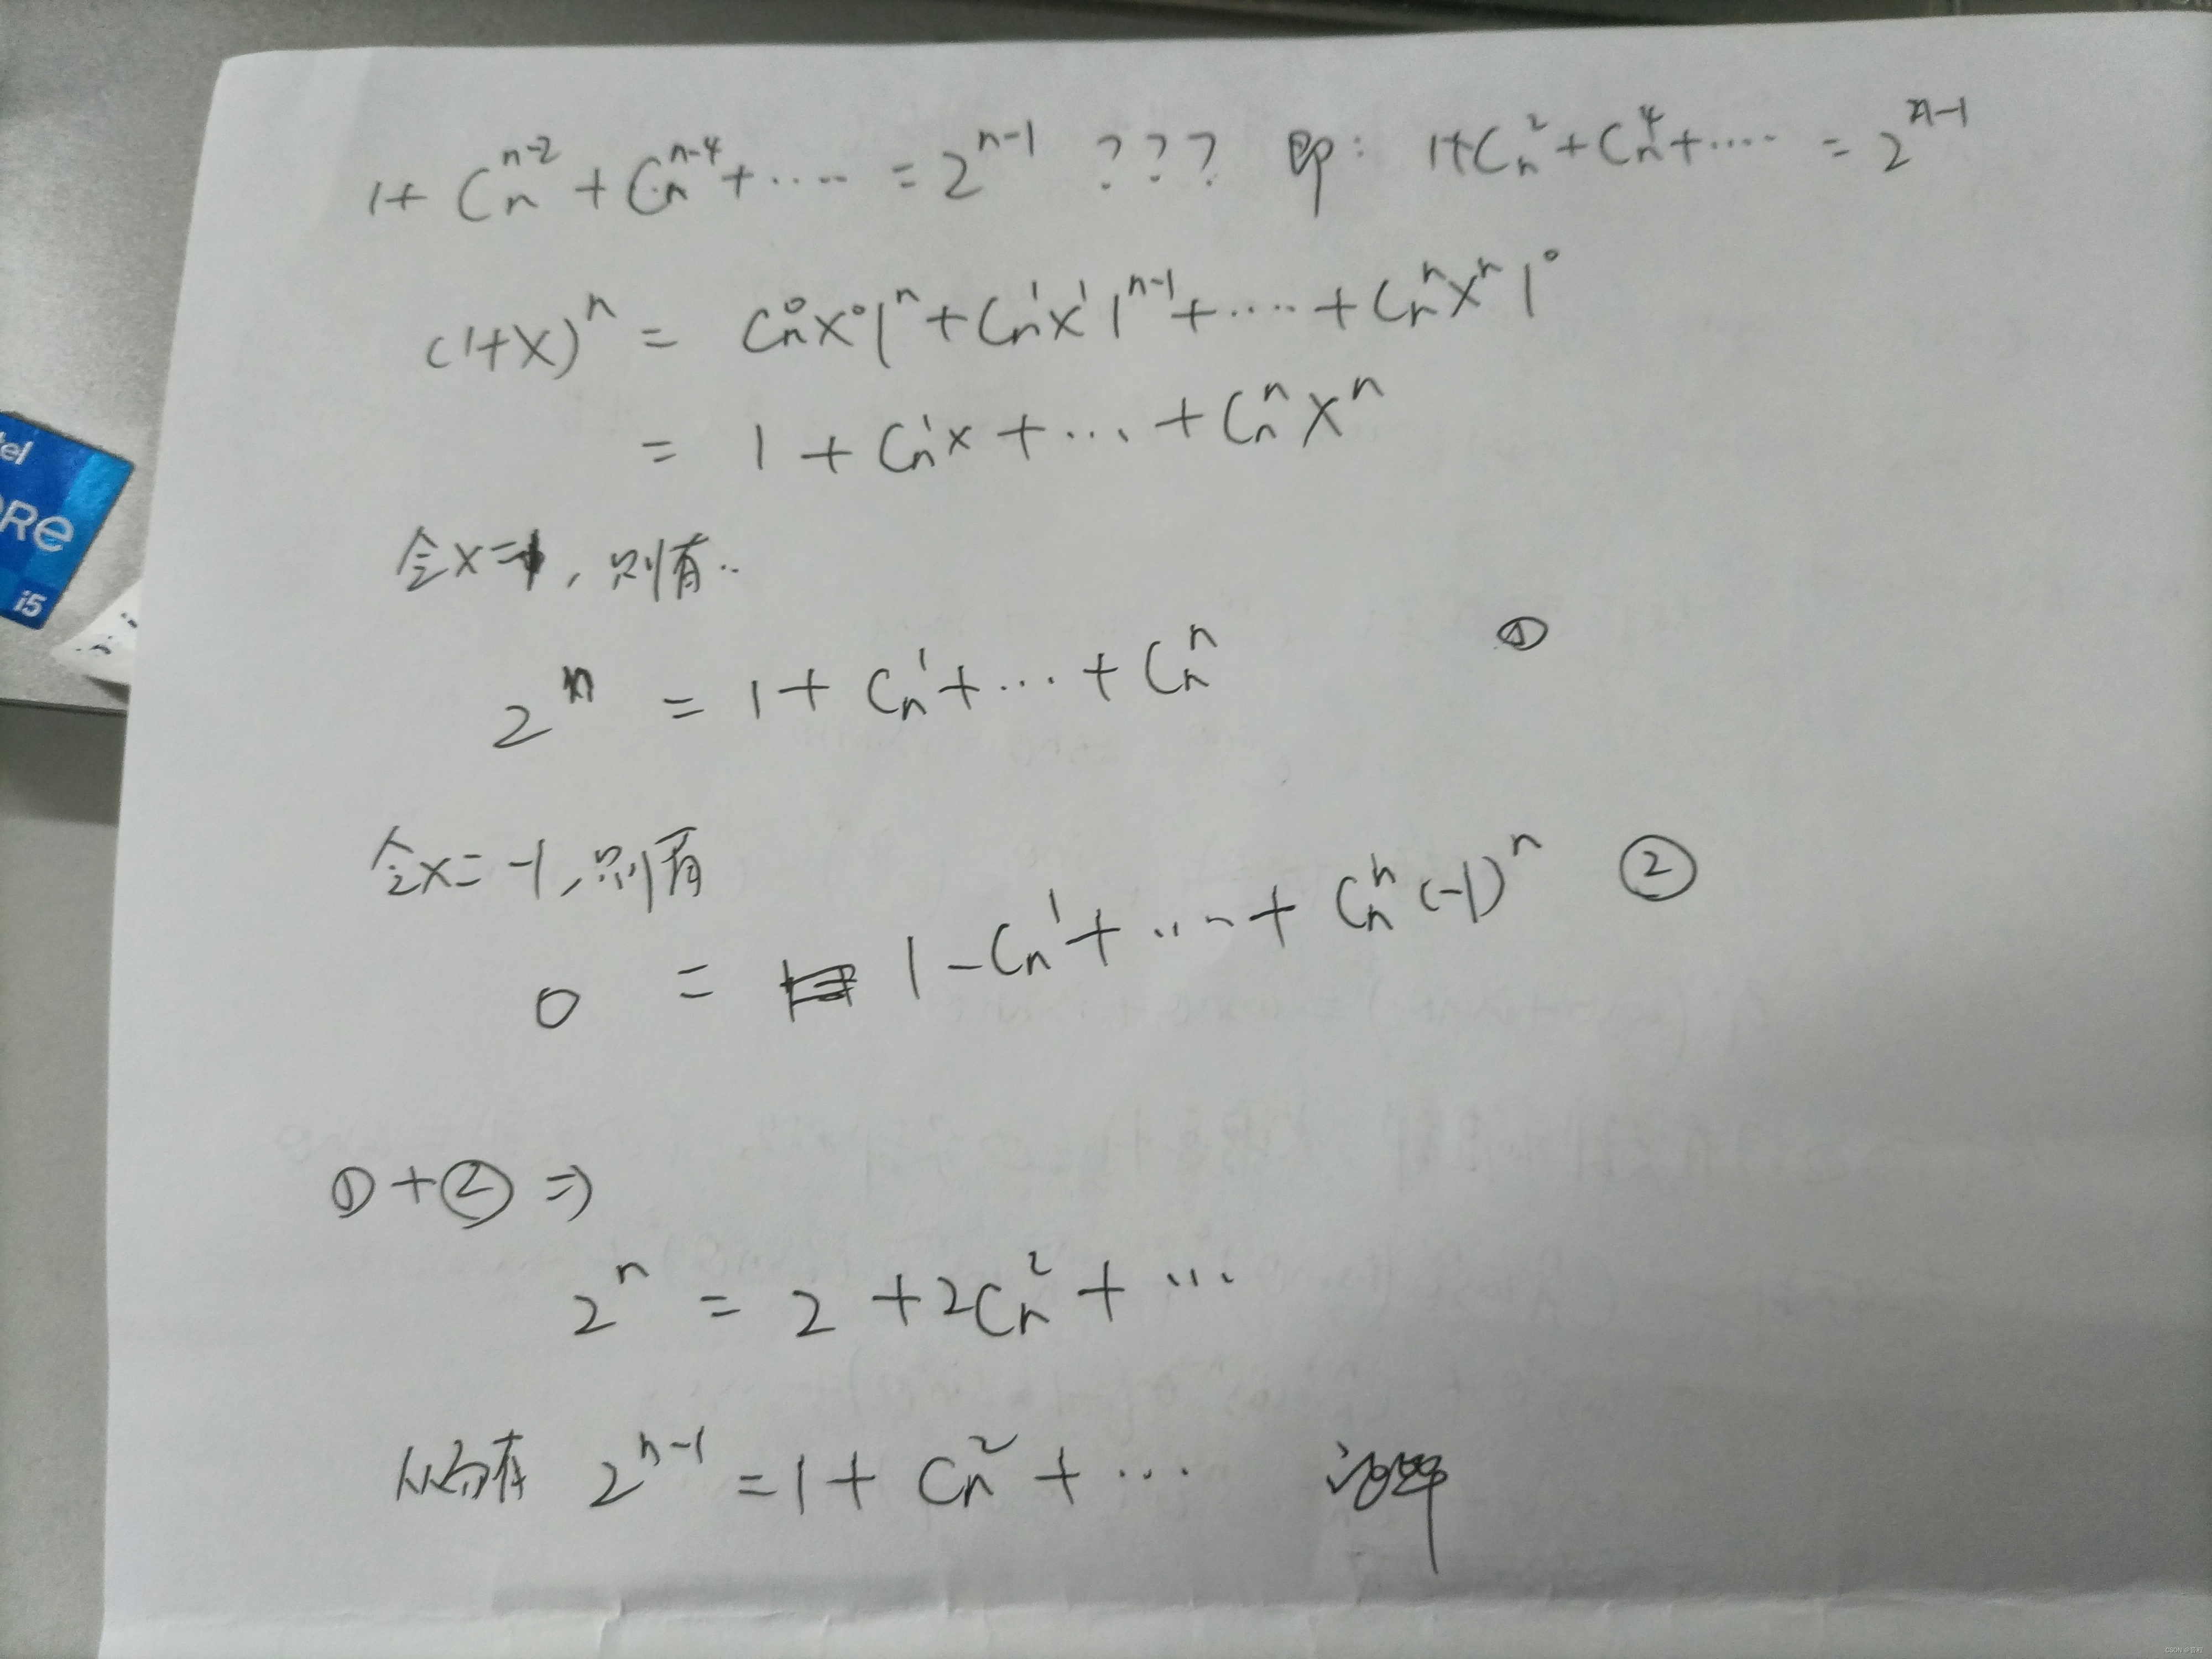 1+Cₙⁿ⁻²+Cₙⁿ⁻⁴+····=2ⁿ⁻¹ ??? 即: 1+Cₙ²+Cₙ⁴+····=2ⁿ⁻¹
(1+x)ⁿ=Cₙ⁰x⁰1ⁿ+Cₙ¹x¹1ⁿ⁻¹+····+Cₙⁿxⁿ1⁰
=1+Cₙ¹x+···+Cₙⁿxⁿ
令x=1,则有··
2ⁿ=1+Cₙ¹+···+Cₙⁿ ①
令x=-1,则有
0=1-Cₙ¹+····+Cₙⁿ(-1)ⁿ ②
①+②⇒
2ⁿ=2+2Cₙ²+···
从而有 2ⁿ⁻¹=1+Cₙ²+··· 证毕
tel
ORe
i5